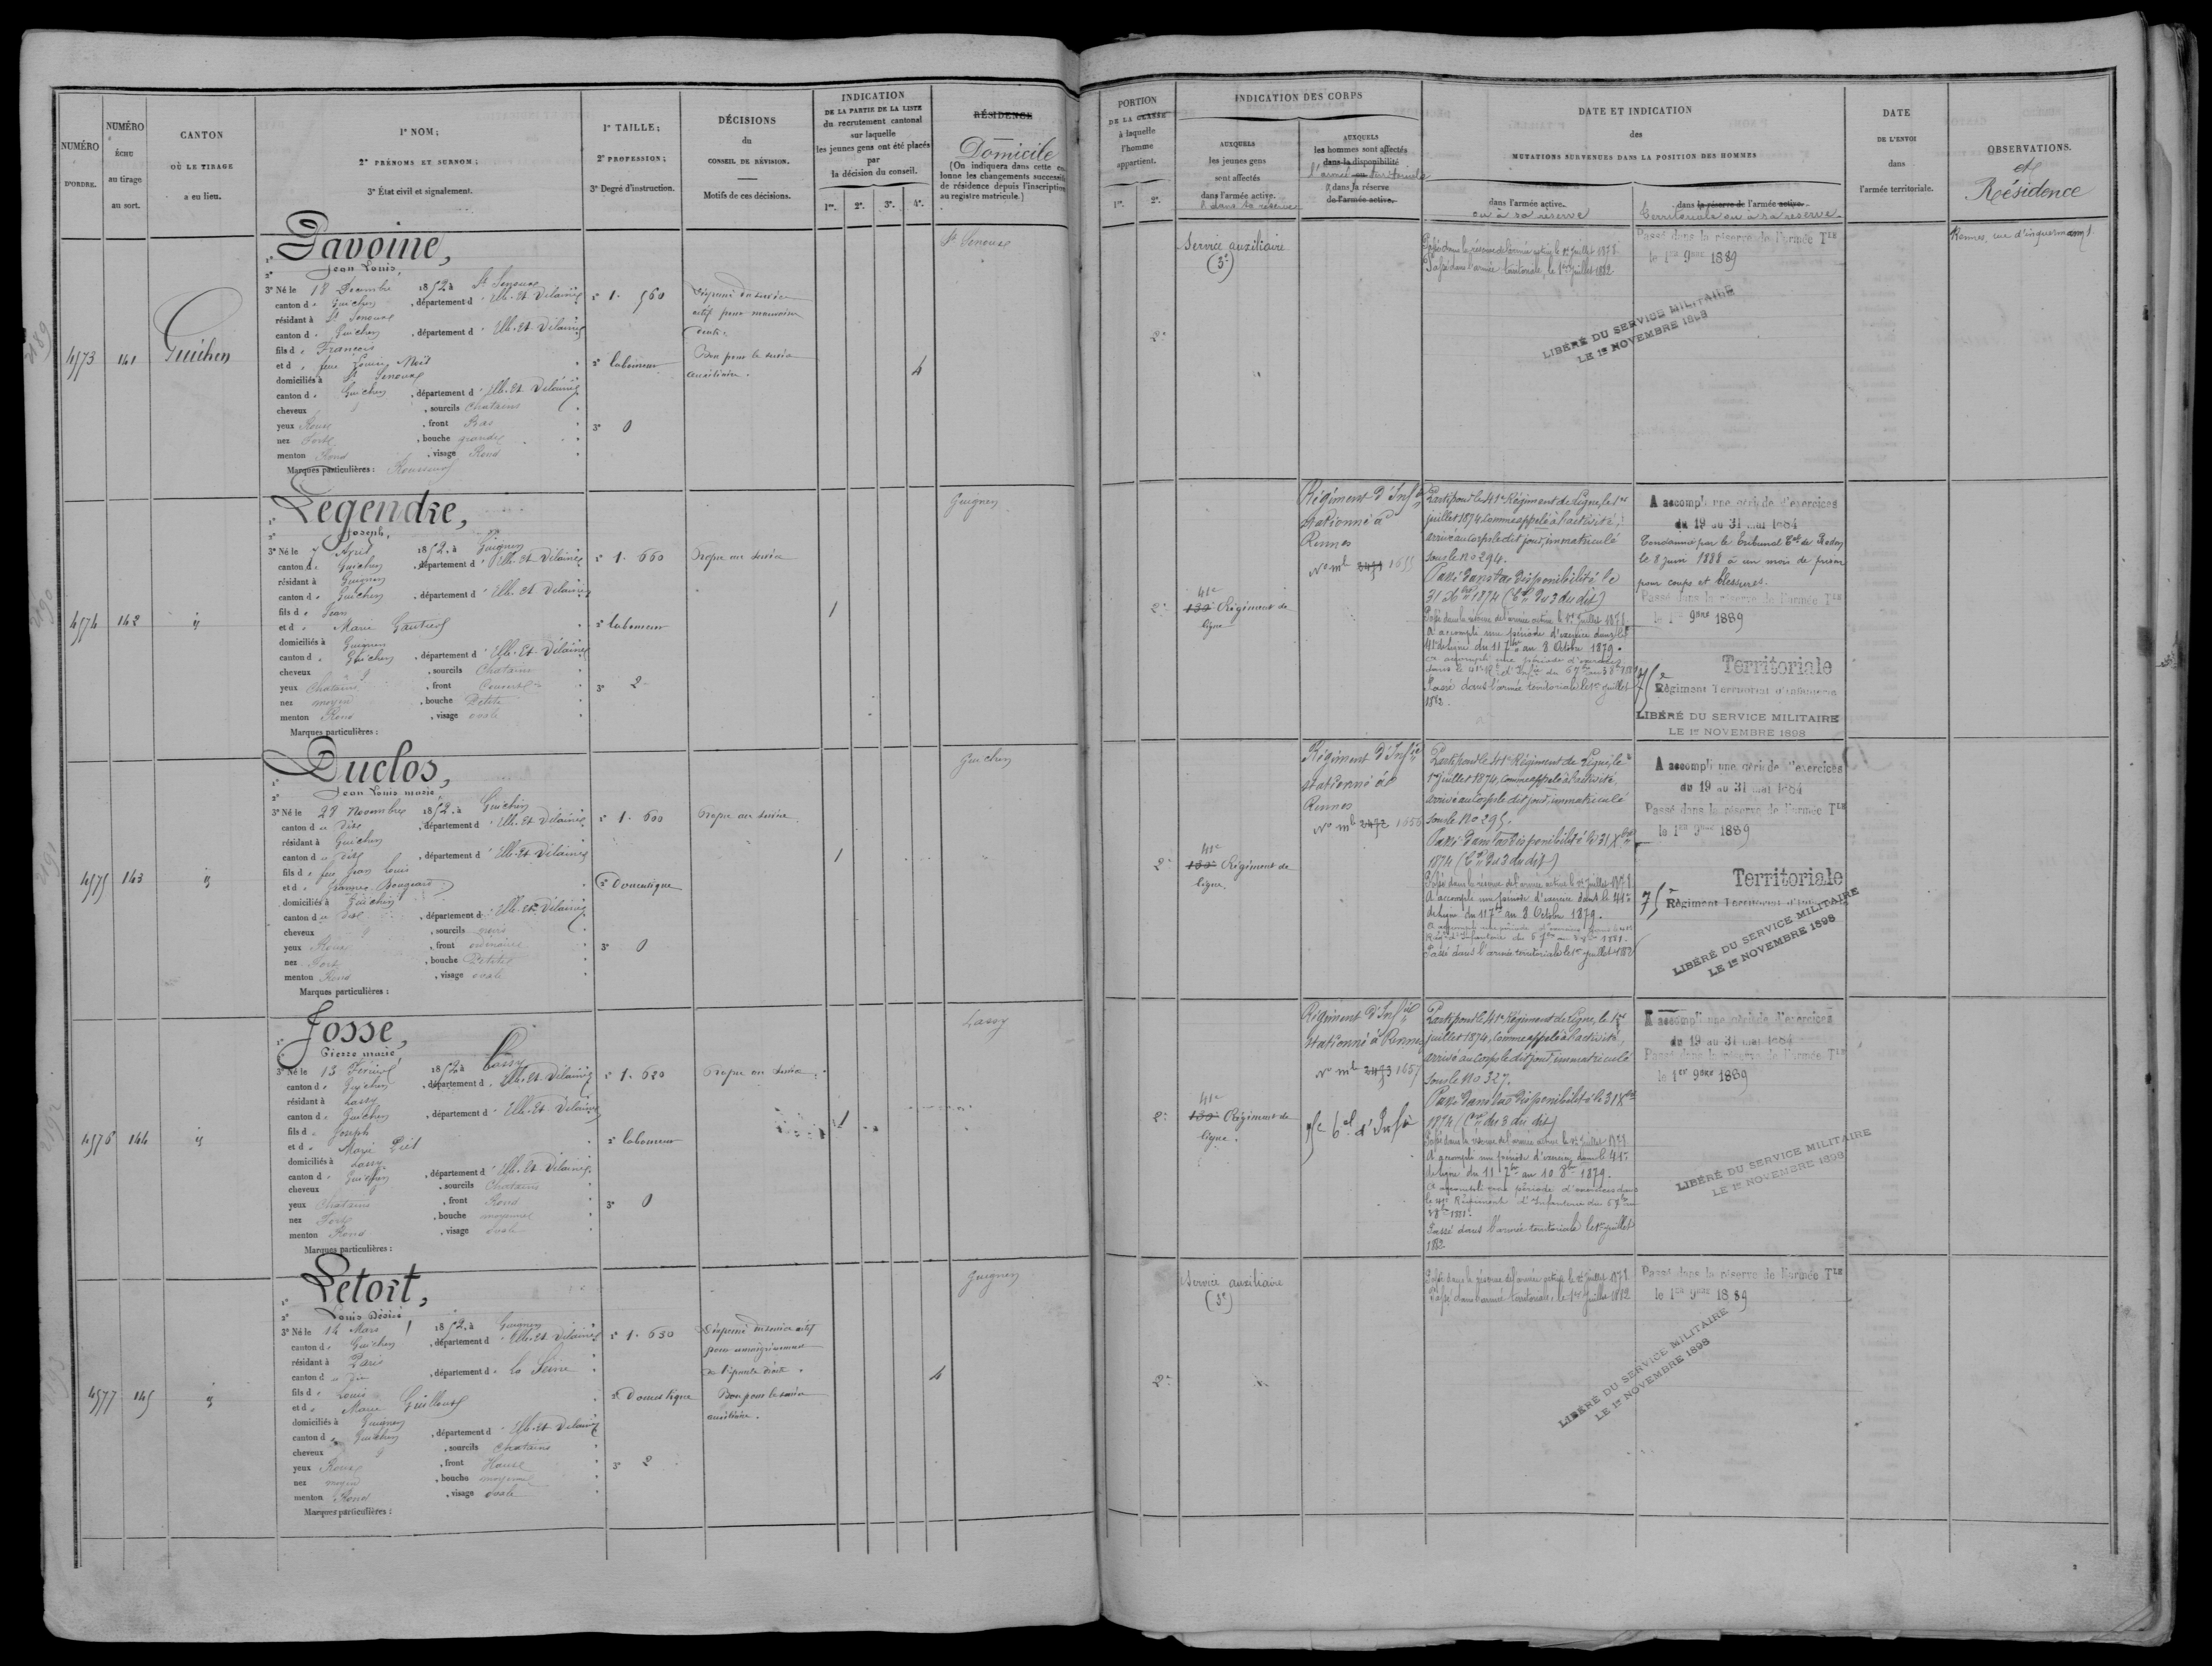 NUMÉRO
D'ORDRE.
NUMÉRO
échu
au tirage
au sort.
CANTON
OÙ LE TIRAGE
a eu lieu.
1° NOM;
2° PRÉNOMS ET SURNOM;
3° État civil et signalement.
1° TAILLE;
2° PROFESSION;
3° Degré d'instruction.
DÉCISIONS
du
CONSEIL DE RÉVISION.
Motifs de ces décisions.
INDICATION
DE LA PARTIE DE LA LISTE
du recrutement cantonal
sur laquelle
les jeunes gens ont été placés
par
la décision du conseil.
1re. 2e. 3e. 4e.
RÉSIDENCE
Domicile
(On indiquera dans cette co-
lonne les changements successifs
de résidence depuis l'inscription
au registre matricule.)
PORTION
DE LA CLASSE
à laquelle
l'homme
appartient.
1re. 2e.
INDICATION DES CORPS
AUXQUELS
les jeunes gens
sont affectés
dans l'armée active.
& dans sa réserve
AUXQUELS
les hommes sont affectés
dans la disponibilité
l'armée territoriale
& dans sa réserve
de l'armée active.
DATE ET INDICATION
des
MUTATIONS SURVENUES DANS LA POSITION DES HOMMES
dans l'armée active.
ou à sa réserve
dans la réserve de l'armée active.
territoriale ou à sa réserve
DATE
DE L'ENVOI
dans
l'armée territoriale.
OBSERVATIONS.
et
Résidence
2189
4573
141
Guichen
Pavoine,
Jean Louis,
3° Né le 18 Décembre 1852 à St Senoux
canton de Guichen, département d'Ille-Et-Vilaine
résidant à St Senoux
canton de Guichen, département d'Ille-Et-Vilaine
fils de François
et de feue Louise Noël
domiciliés à St Senoux
canton de Guichen, département d'Ille-Et-Vilaine
cheveux, sourcils Chatains
yeux Roux, front Bas
nez Fort, bouche grande
menton Rond, visage Rond
Marques particulières: Rousseurs
1° 1. 560
2° laboureur
3° 0
Dispensé du service
actif pour mauvaise
Bon pour le service
auxiliaire.
4
St Senoux
2e
Service auxiliaire
(3e)
Passé dans la réserve de l'armée active le 1er Juillet 1878
Passé dans l'armée territoriale, le 1er Juillet 1882
Passé dans la réserve de l'armée Tle
le 1er 9bre 1889
LIBÉRÉ DU SERVICE MILITAIRE
LE 1er NOVEMBRE 1898
Rennes, rue d'inquermann
2190
4574
142
id
Legendre,
Joseph,
3° Né le 7 Avril 1852, à Guignen
canton de Guichen, département d'Ille-Et-Vilaine
résidant à Guignen
canton de Guichen, département d'Ille-Et-Vilaine
fils de Jean
et de Marie Gautier
domiciliés à Guignen
canton de Guichen, département d'Ille-Et-Vilaine
cheveux, sourcils Chatains
yeux Chatains, front Couvert
nez moyen, bouche Petite
menton Rond, visage ovale
Marques particulières:
1° 1. 660
2° laboureur
3° 2
Propre au service
1
Guignen
2e
41e
130e Régiment de
ligne
Régiment d'Infie
stationné à
Rennes
No mle 2471 1655
Parti pour le 41e Régiment de Ligne, le 1er
juillet 1874, comme appelé à l'activité,
arrivé au corps le dit jour, immatriculé
sous le No 294.
Passé dans la disponibilité le
31 Xbre 1874 (Cre du 3 du dit)
Passé dans la réserve de l'armée active le 1er Juillet 1878
A accompli une période d'exercice dans le
41e de ligne du 11 7bre au 8 Octobre 1879.
A accompli une période d'exercices
Passé dans l'armée territoriale le 1er juillet
1882.
A accompli une période d'exercices
du 19 au 31 mai 1884
Condamné par le tribunal Cel de Redon
le 8 juin 1888 à un mois de prison
pour coups et blessures.
Passé dans la réserve de l'armée Tle
le 1er 9bre 1889
Territoriale
75e Régiment Territorial d'Infanterie
LIBÉRÉ DU SERVICE MILITAIRE
LE 1er NOVEMBRE 1898
2191
4575
143
id
Duclos,
Jean Louis marie,
3° Né le 28 Novembre 1852, à Guichen
canton du dit, département d'Ille-Et-Vilaine
résidant à Guichen
canton du dit, département d'Ille-Et-Vilaine
fils de feu Jean Louis
et de Jeanne Bougeard
domiciliés à Guichen
canton du dit, département d'Ille-Et-Vilaine
cheveux, sourcils noirs
yeux Roux, front ordinaire
nez Fort, bouche Petite
menton Rond, visage ovale
Marques particulières:
1° 1. 600
2° Domestique
3° 0
Propre au service
1
Guichen
2e
41e
130e Régiment de
ligne.
Régiment d'Infie
stationné à
Rennes
No mle 2472 1656
Parti pour le 41e Régiment de Ligne, le
1er juillet 1874, comme appelé à l'activité,
arrivé au corps le dit jour, immatriculé
sous le No 295.
Passé dans la disponibilité le 31 Xbre
1874 (Cre du 3 du dit)
Passé dans la réserve de l'armée active le 1er Juillet 1878
A accompli une période d'exercice dans le 41e
de ligne du 11 7bre au 8 Octobre 1879.
Passé dans l'armée territoriale le 1er juillet 1882
A accompli une période d'exercices
du 19 au 31 mai 1884
Passé dans la réserve de l'armée Tle
le 1er 9bre 1889
Territoriale
75e Régiment Territorial d'Infanterie
LIBÉRÉ DU SERVICE MILITAIRE
LE 1er NOVEMBRE 1898
2192
4576
144
id
Josse,
Pierre marie,
3° Né le 13 Février 1852, à Lassy
canton de Guichen, département d'Ille-Et-Vilaine
résidant à Lassy
canton de Guichen, département d'Ille-Et-Vilaine
fils de Joseph
et de Marie Piel
domiciliés à Lassy
canton de Guichen, département d'Ille-Et-Vilaine
cheveux, sourcils Chatains
yeux Chatains, front Rond
nez Fort, bouche moyenne
menton Rond, visage ovale
Marques particulières:
1° 1. 620
2° laboureur
3° 0
Propre au service
1
Lassy
2e
41e
130e Régiment de
ligne.
Régiment d'Infie
stationné à Rennes
No mle 2473 1657
Parti pour le 41e Régiment de Ligne, le 1er
juillet 1874, comme appelé à l'activité,
arrivé au corps le dit jour, immatriculé
sous le No 327.
Passé dans la disponibilité le 31 Xbre
1874 (Cre du 3 du dit)
Passé dans la réserve de l'armée active le 1er Juillet 1878
A accompli une période d'exercice dans le 41e
de ligne du 11 7bre au 10 8bre 1879.
A accompli une période d'exercices dans
le 41e Régiment d'Infanterie du 6 7bre au
3 8bre 1881.
Passé dans l'armée territoriale le 1er juillet
1882
A accompli une période d'exercices
du 19 au 31 mai 1884
Passé dans la réserve de l'armée Tle
le 1er 9bre 1889
LIBÉRÉ DU SERVICE MILITAIRE
LE 1er NOVEMBRE 1898
2193
4577
145
id
Letort,
Louis Désiré
3° Né le 14 Mars 1852, à Guignen
canton de Guichen, département d'Ille-Et-Vilaine
résidant à Paris
canton du dit, département de la Seine
fils de Louis
et de Marie Guilloux
domiciliés à Guignen
canton de Guichen, département d'Ille-Et-Vilaine
cheveux, sourcils Chatains
yeux Roux, front Haut
nez moyen, bouche moyenne
menton Rond, visage ovale
Marques particulières:
1° 1. 630
2° Domestique
3° 2
Dispensé du service actif
pour amaigrissement
de l'épaule droite.
Bon pour le service
auxiliaire.
4
Guignen
2e
Service auxiliaire
(3e)
Passé dans la réserve de l'armée active le 1er Juillet 1878
Passé dans l'armée territoriale, le 1er Juillet 1882
Passé dans la réserve de l'armée Tle
le 1er 9bre 1889
LIBÉRÉ DU SERVICE MILITAIRE
LE 1er NOVEMBRE 1898